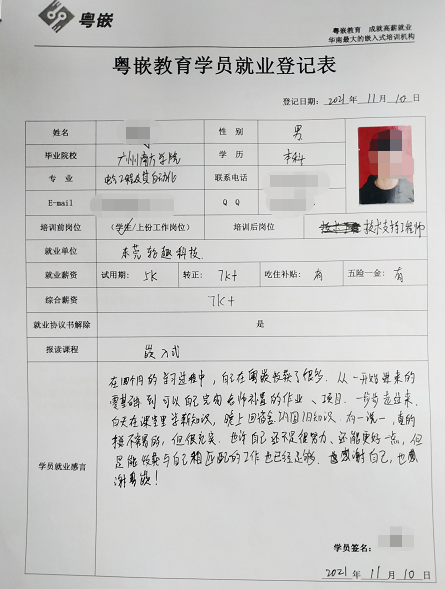 粤嵌
粤嵌教育 成就高薪就业
华南最大的嵌入式培训机构
粤嵌教育学员就业登记表
登记日期: 2021 年 11 月 10 日
姓名 性 别 男
毕业院校 广州南方学院 学 历 本科
专 业 电气工程及其自动化 联系电话
E-mail Q Q
培训前岗位 (学生/上份工作岗位) 培训后岗位 技术支持工程师
就业单位 东莞 科技
就业薪资 试用期: 5k 转正: 7k+ 吃住补贴: 有 五险一金: 有
综合薪资 7k+
就业协议书解除 是
报读课程 嵌入式
在四个月的学习过程中,自己在粤嵌收获了很多. 从一开始原来的
零基础到可以自己完成老师布置的作业、项目. 一步步走过来.
白天在课室里学新知识,晚上回宿舍巩固旧知识. 有一说一,真的
挺不容易的,但很充实. 也许自己还不足够努力、还能更好一点,但
是能收获与自己相匹配的工作也已经足够. 感谢自己,也感
谢粤嵌!
学员就业感言
学员签名:
2021 年 11 月 10 日